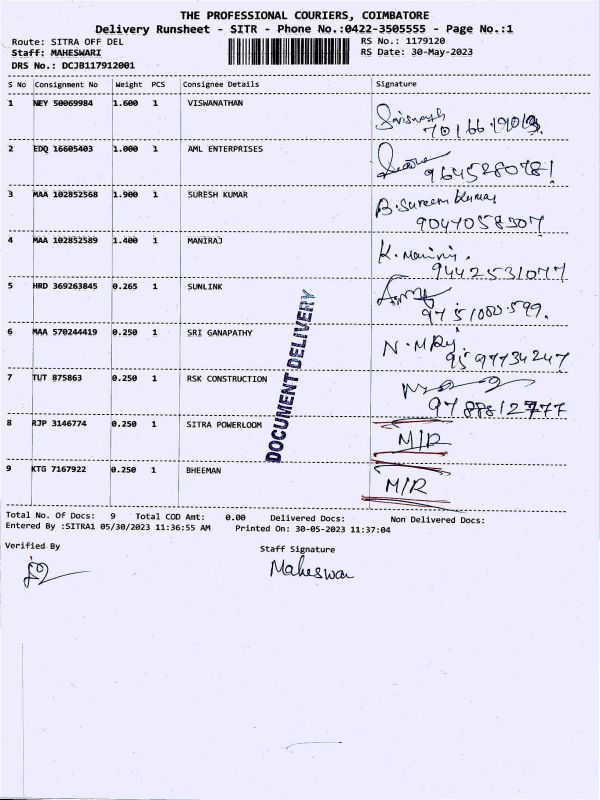 THE PROFESSIONAL COURIERS, COIMBATORE
Delivery Runsheet - SITR - Phone No.:0422-3505555 - Page No.:1
Route: SITRA OFF DEL RS No.: 1179120
Staff: MAHESWARI RS Date: 30-May-2023
DRS No.: DCJB117912001
S No Consignment No Weight PCS Consignee Details Signature
1 NEY 50069984 1.600 1 VISWANATHAN
2 EDQ 16605403 1.000 1 AML ENTERPRISES
9645280781
3 MAA 102852568 1.900 1 SURESH KUMAR B. Sureem Kumar
9047058307
4 MAA 102852589 1.400 1 MANIRAJ
9442531077
5 HRD 369263845 0.265 1 SUNLINK
9751080599.
6 MAA 570244419 0.250 1 SRI GANAPATHY
9597734247
7 TUT 875863 0.250 1 RSK CONSTRUCTION
9788812777
8 RJP 3146774 0.250 1 SITRA POWERLOOM M/R
9 KTG 7167922 0.250 1 BHEEMAN M/R
DOCUMENT DELIVERY
Total No. Of Docs: 9 Total COD Amt: 0.00 Delivered Docs: Non Delivered Docs:
Entered By :SITRA1 05/30/2023 11:36:55 AM Printed On: 30-05-2023 11:37:04
Verified By Staff Signature
Maheswari